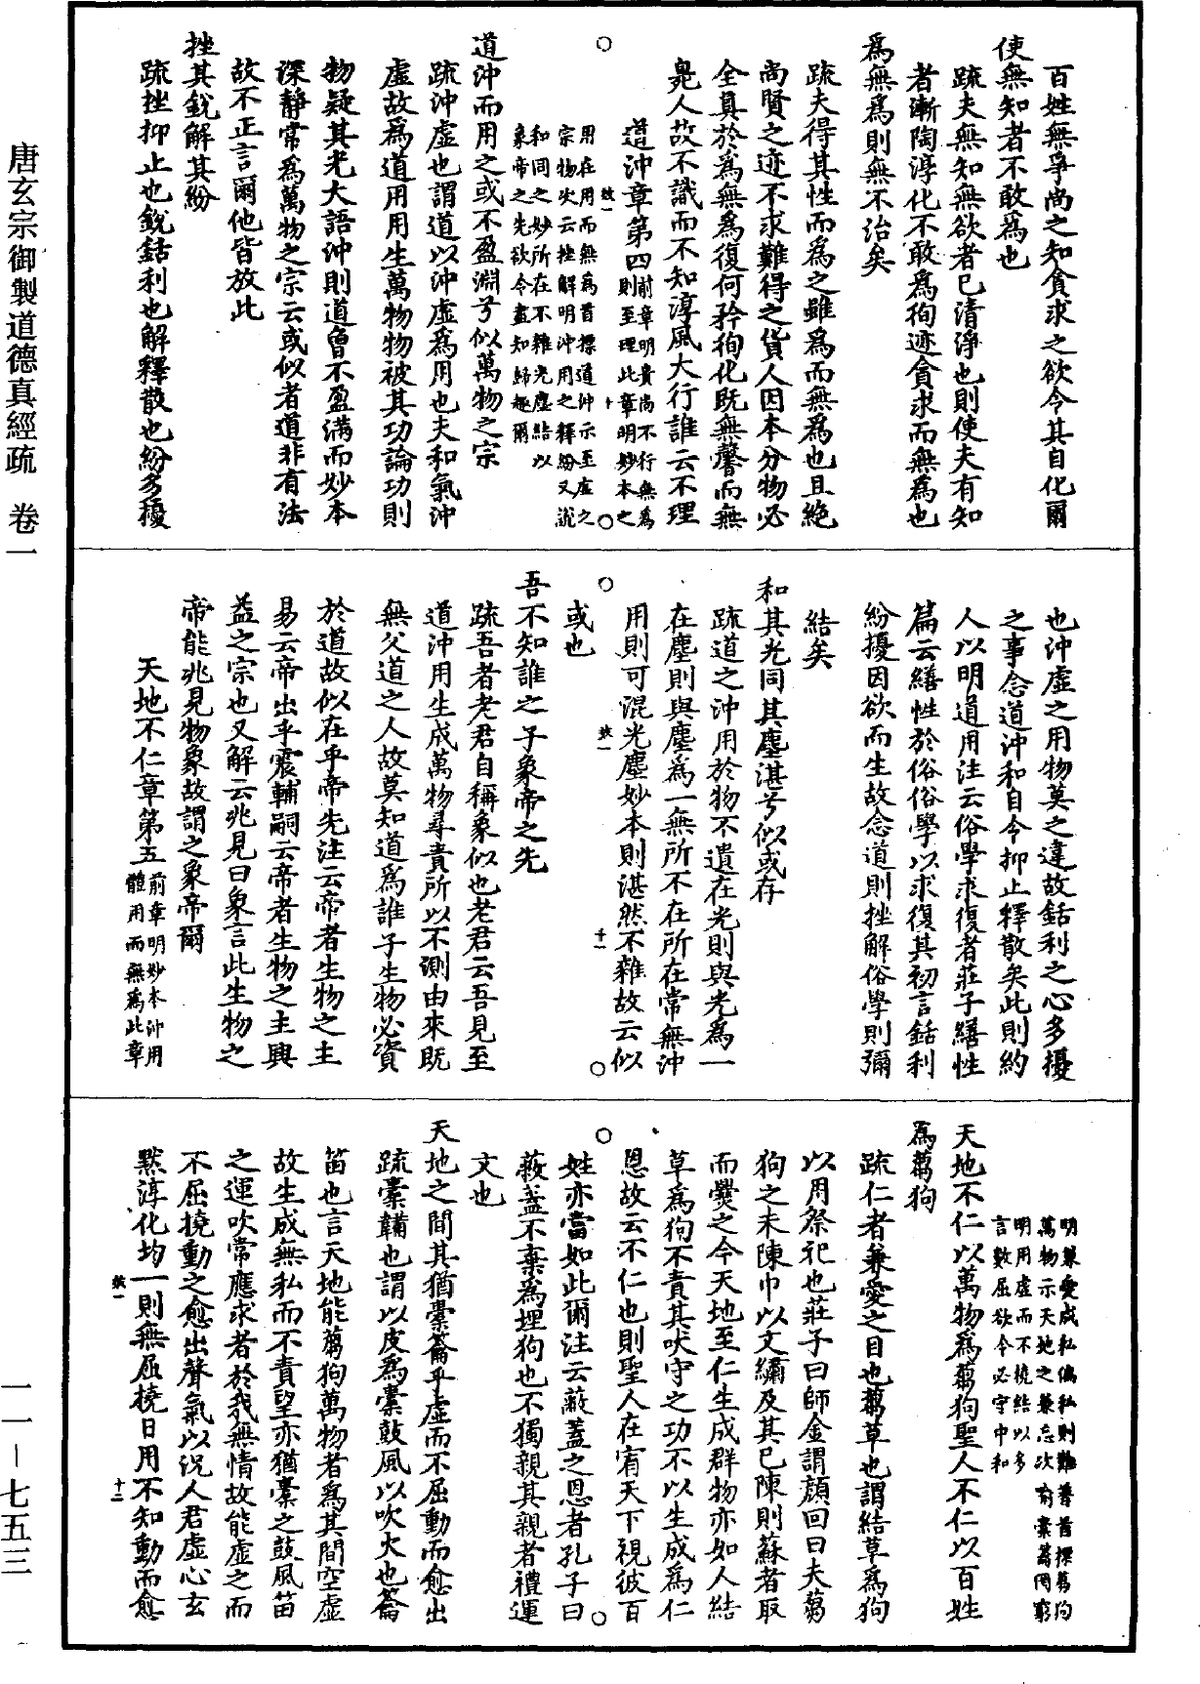 唐玄宗御製道德真經疏　卷一
一一—七五三
百姓無爭尚之知貪求之欲令其自化爾
使無知者不敢爲也
疏夫無知無欲者已清淨也則使夫有知
者漸陶淳化不敢爲徇迹貪求而無爲也
爲無爲則無不治矣
疏夫得其性而爲之雖爲而無爲也且絶
尚賢之迹不求難得之貨人因本分物必
全真於爲無爲復何矜徇化既無馨而無
臭人故不識而不知淳風大行誰云不理
道沖章第四
前章明貴尚不行無爲
則至理此章明妙本之
用在用而無爲首標道沖示至虛之
宗物次云挫解明沖用之釋紛又說
和同之妙所在不雜光塵結以
象帝之先欲令盡知歸趣爾
道沖而用之或不盈淵兮似萬物之宗
疏沖虛也謂道以沖虛爲用也夫和氣沖
虛故爲道用用生萬物物被其功論功則
物疑其光大語沖則道曾不盈滿而妙本
深靜常爲萬物之宗云或似者道非有法
故不正言爾他皆放此
挫其銳解其紛
疏挫抑止也銳銛利也解釋散也紛多擾
也沖虛之用物莫之違故銛利之心多擾
之事念道沖和自令抑止釋散矣此則約
人以明道用注云俗學求復者莊子繕性
篇云繕性於俗俗學以求復其初言銛利
紛擾因欲而生故念道則挫解俗學則彌
結矣
和其光同其塵湛兮似或存
疏道之沖用於物不遺在光則與光爲一
在塵則與塵爲一無所不在所在常無沖
用則可混光塵妙本則湛然不雜故云似
或也
吾不知誰之子象帝之先
疏吾者老君自稱象似也老君云吾見至
道沖用生成萬物尋責所以不測由來既
無父道之人故莫知道爲誰子生物必資
於道故似在乎帝先注云帝者生物之主
易云帝出乎震輔嗣云帝者生物之主興
益之宗也又解云兆見曰象言此生物之
帝能兆見物象故謂之象帝爾
天地不仁章第五
前章明妙本沖用
體用而無爲此章
明兼愛成私偏私則難普首標芻狗
萬物示天地之兼忘次喻橐籥罔窮
明用虛而不撓結以多
言數屈欲令必守中和
天地不仁以萬物爲芻狗聖人不仁以百姓
爲芻狗
疏仁者兼愛之目也芻草也謂結草爲狗
以用祭祀也莊子曰師金謂顔回曰夫芻
狗之未陳巾以文繡及其已陳則蘇者取
而爨之今天地至仁生成群物亦如人結
草爲狗不責其吠守之功不以生成爲仁
恩故云不仁也則聖人在宥天下視彼百
姓亦當如此爾注云蔽蓋之恩者孔子曰
蔽蓋不棄爲埋狗也不獨親其親者禮運
文也
天地之間其猶橐籥乎虛而不屈動而愈出
疏橐韛也謂以皮爲橐鼓風以吹火也籥
笛也言天地能芻狗萬物者爲其間空虛
故生成無私而不責望亦猶橐之鼓風笛
之運吹常應求者於我無情故能虛之而
不屈撓動之愈出聲氣以況人君虛心玄
默淳化均一則無屈撓日用不知動而愈